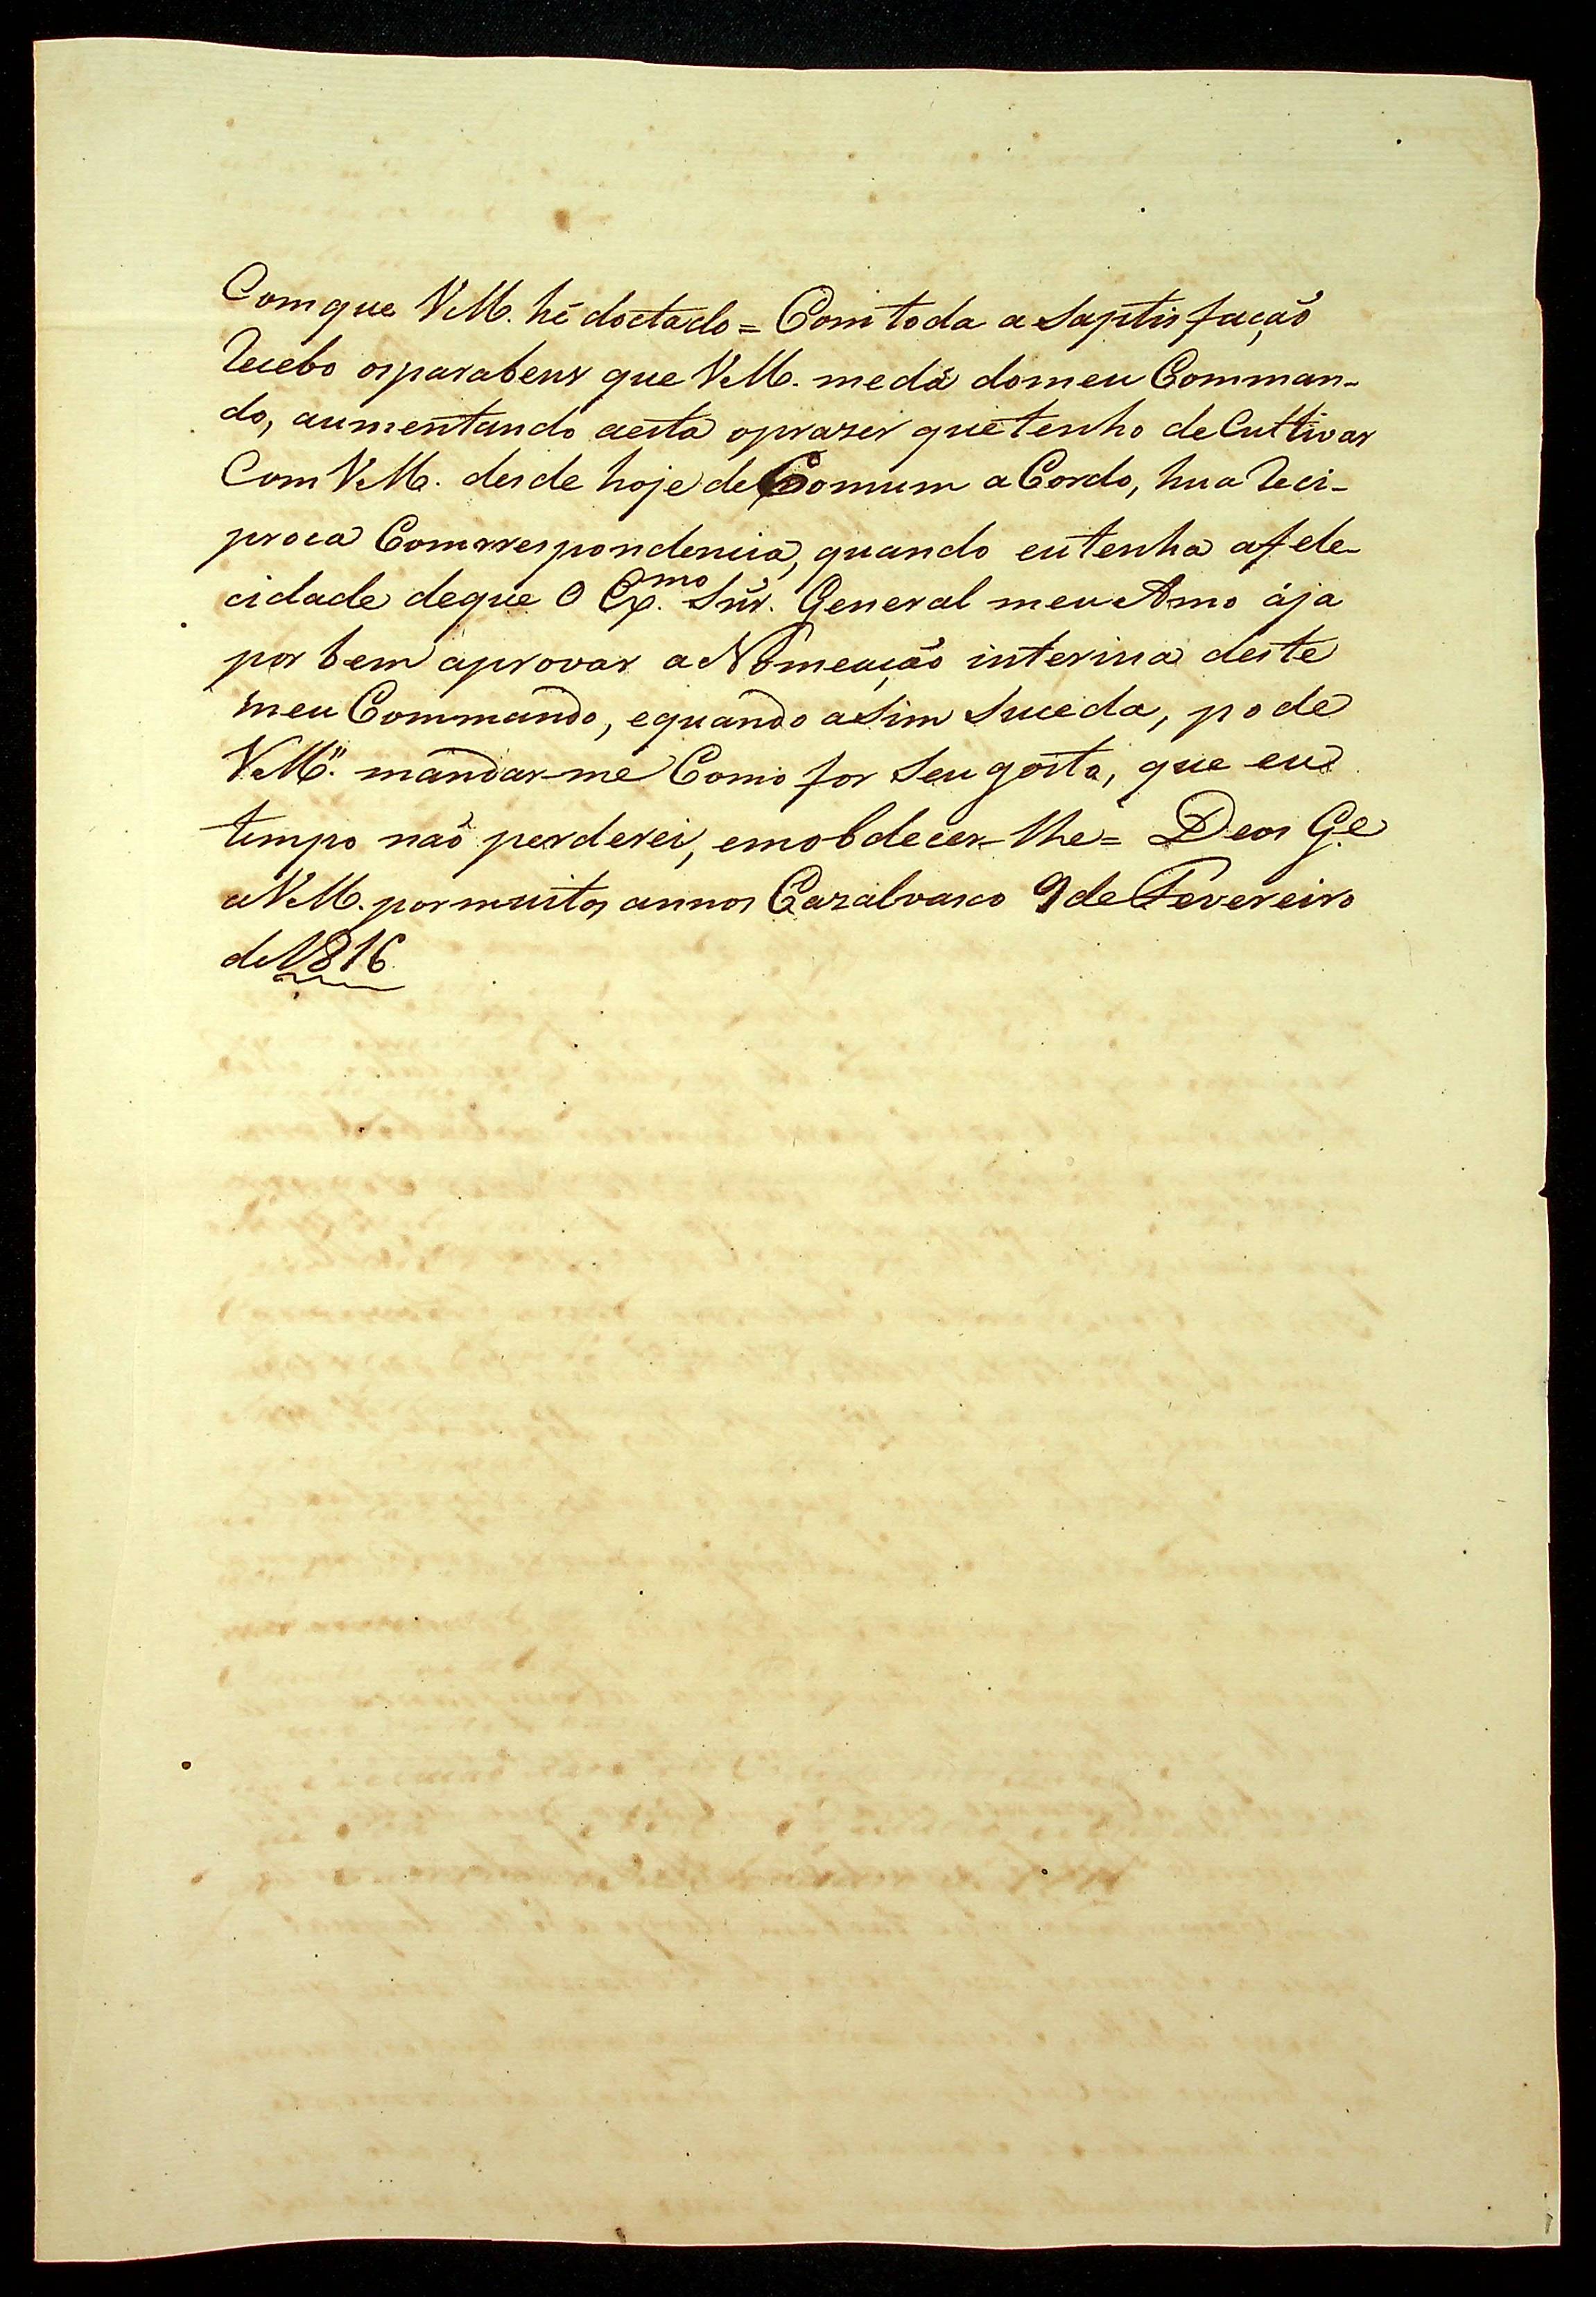 Com que V.M. hé doctado = Com toda a saptisfação
recebo os parabens que V.M. me dá do meu Comman-
do, aumentando a esta o praser que tenho de Cultivar
Com V.M. desde hoje de Comum a Cordo, hua reci-
proca Comrrespondencia, quando eu tenha a fele-
cidade de que O Ex.mo Snr. General meu Amo ája
por bem aprovar a Nomeação interina deste
meu Commando, e quando asim suceda, pode
V.M.ce mandar-me Como for seu gosto, que eu
tempo não perderei, em obdecer-lhe = Deos G.e
a V.M. por muitos annos Cazalvasco 9 de Fevereiro
de 1816